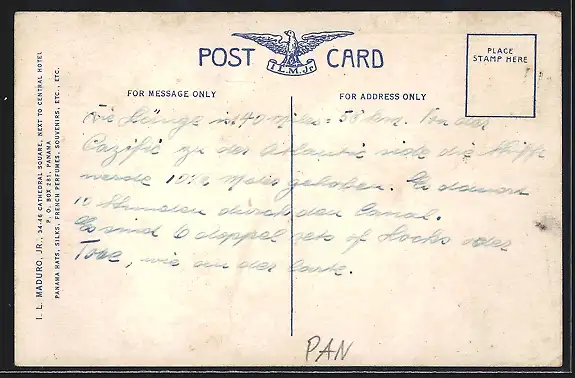 POST CARD
I.L.M.Jr.
PLACE
STAMP HERE
FOR MESSAGE ONLY
FOR ADDRESS ONLY
I. L. MADURO, JR., 34-46 CATHEDRAL SQUARE, NEXT TO CENTRAL HOTEL
P. O. BOX 281, PANAMA
PANAMA HATS, SILKS, FRENCH PERFUMES, SOUVENIRS, ETC., ETC.
Die Länge ist 40 miles = 58 km. Von der
Pazific zu der Atlantic side die Schiffe
werde gehoben. Es dauert
10 Stunden durch den Canal.
Es sind 6 doppel sets of Locks oder
Tore, wie an der Carte.
PAN